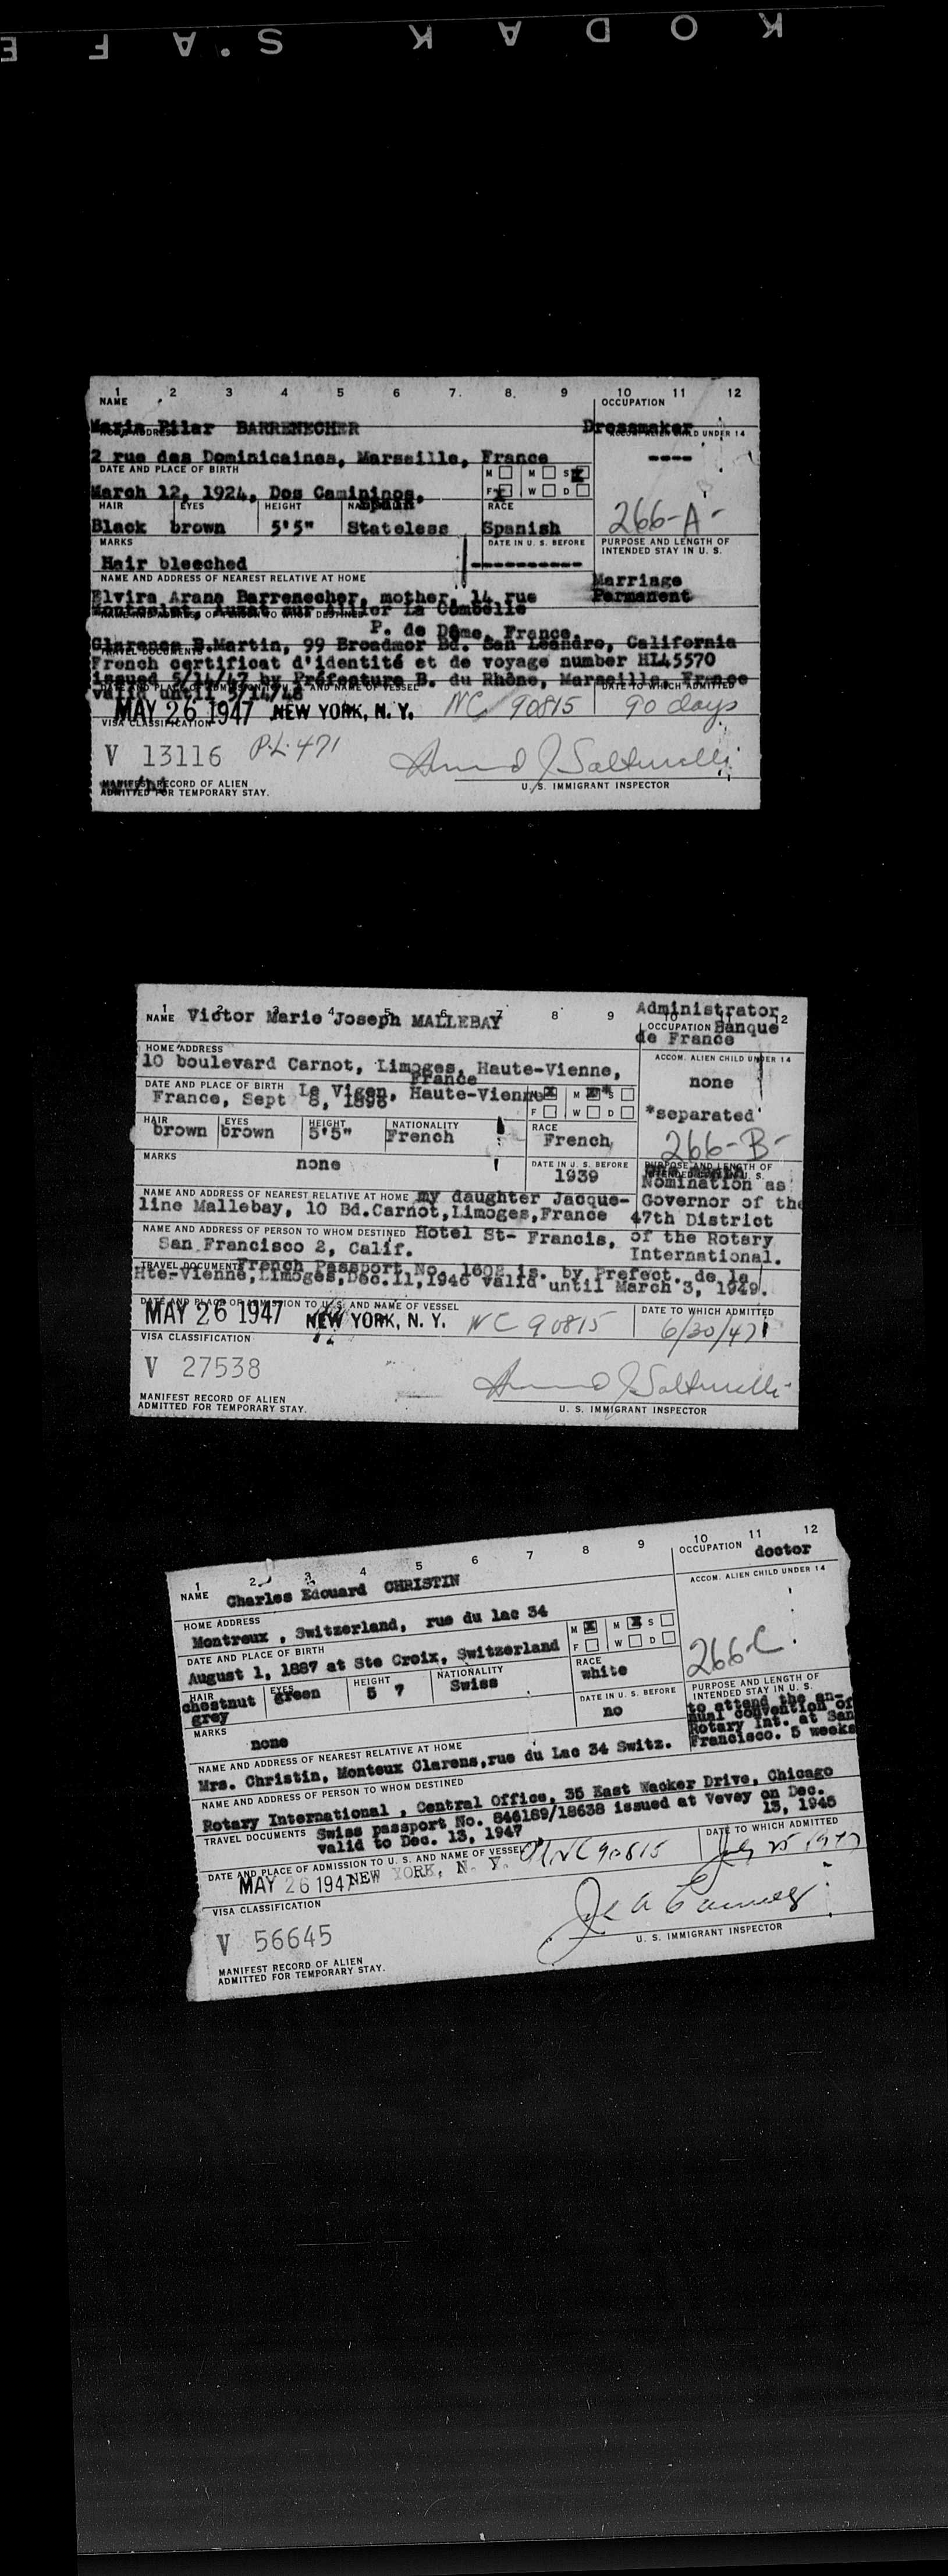 KODAK S.A F E
1 2 3 4 5 6 7 8 9 10 11 12
NAME
OCCUPATION
Maria Pilar BARRENECHER
Dressmaker
2 rue des Dominicaines, Marseille, France
----
DATE AND PLACE OF BIRTH
M M S X
March 12, 1924, Dos Camininos, Spain
F X W D
HAIR EYES HEIGHT RACE
Black brown 5'5" Stateless Spanish
266-A-
MARKS
DATE IN U. S. BEFORE
PURPOSE AND LENGTH OF
INTENDED STAY IN U. S.
Hair bleached
----------
NAME AND ADDRESS OF NEAREST RELATIVE AT HOME
Marriage
Permanent
Elvira Arana Barrenecher, mother, 14 rue
Auzat sur Allier La Combelle
P. de Dôme, France
Clarence B.Martin, 99 Broadmor Bd. San Leandro, California
TRAVEL DOCUMENTS
French certificat d'identité et de voyage number HL45570
issued 5/14/47 by Préfecture B. du Rhône, Marseille, France
DATE TO WHICH ADMITTED
valid until 5/14/48
MAY 26 1947 NEW YORK, N. Y. NC 90815 90 days
VISA CLASSIFICATION
V 13116 P.L. 471
MANIFEST RECORD OF ALIEN
ADMITTED FOR TEMPORARY STAY.
U. S. IMMIGRANT INSPECTOR
1 2 3 4 5 6 7 8 9 10 11 12
NAME Victor Marie Joseph MALLEBAY
Administrator
OCCUPATION Banque
de France
HOME ADDRESS
ACCOM. ALIEN CHILD UNDER 14
10 boulevard Carnot, Limoges, Haute-Vienne,
France
none
DATE AND PLACE OF BIRTH Le Vigen, Haute-Vienne
France, Sept 8, 1896
M X M X* S
F W D
*separated
HAIR EYES HEIGHT NATIONALITY RACE
brown brown 5'5" French French
266-B-
MARKS
none
DATE IN U. S. BEFORE
1939
PURPOSE AND LENGTH OF
Nomination as
Governor of the
47th District
of the Rotary
International.
NAME AND ADDRESS OF NEAREST RELATIVE AT HOME my daughter Jacque-
line Mallebay, 10 Bd.Carnot,Limoges,France
NAME AND ADDRESS OF PERSON TO WHOM DESTINED Hotel St- Francis,
San Francisco 2, Calif.
TRAVEL DOCUMENTS French Passport No. 1602 is. by Prefect. de la
Hte-Vienne,Limoges,Dec.11,1946 valid until March 3, 1949.
DATE AND PLACE OF ADMISSION TO U. S. AND NAME OF VESSEL
DATE TO WHICH ADMITTED
MAY 26 1947 NEW YORK, N. Y. NC 90815 6/30/47
VISA CLASSIFICATION
V 27538
MANIFEST RECORD OF ALIEN
ADMITTED FOR TEMPORARY STAY.
U. S. IMMIGRANT INSPECTOR
1 2 3 4 5 6 7 8 9 10 11 12
NAME Charles Edouard CHRISTIN
OCCUPATION doctor
HOME ADDRESS
ACCOM. ALIEN CHILD UNDER 14
Montreux , Switzerland, rue du lac 34
DATE AND PLACE OF BIRTH
M X M X S
F W D
August 1, 1887 at Ste Croix, Switzerland
HAIR EYES HEIGHT NATIONALITY RACE
chestnut green 5 7 Swiss white
grey
266-C
MARKS
none
DATE IN U. S. BEFORE
no
PURPOSE AND LENGTH OF
INTENDED STAY IN U. S.
to attend the an-
nual convention of
Rotary Int. at San
Francisco. 5 weeks
NAME AND ADDRESS OF NEAREST RELATIVE AT HOME
Mrs. Christin, Monteux Clarens,rue du Lac 34 Switz.
NAME AND ADDRESS OF PERSON TO WHOM DESTINED
Rotary International , Central Office, 35 East Wacker Drive, Chicago
TRAVEL DOCUMENTS Swiss passport No. 846189/18638 issued at Vevey on Dec.
valid to Dec. 13, 1947 13, 1945
DATE AND PLACE OF ADMISSION TO U. S. AND NAME OF VESSEL
DATE TO WHICH ADMITTED
MAY 26 1947 NEW YORK, N. Y. NC 90815 July 25 1947
VISA CLASSIFICATION
V 56645
MANIFEST RECORD OF ALIEN
ADMITTED FOR TEMPORARY STAY.
U. S. IMMIGRANT INSPECTOR